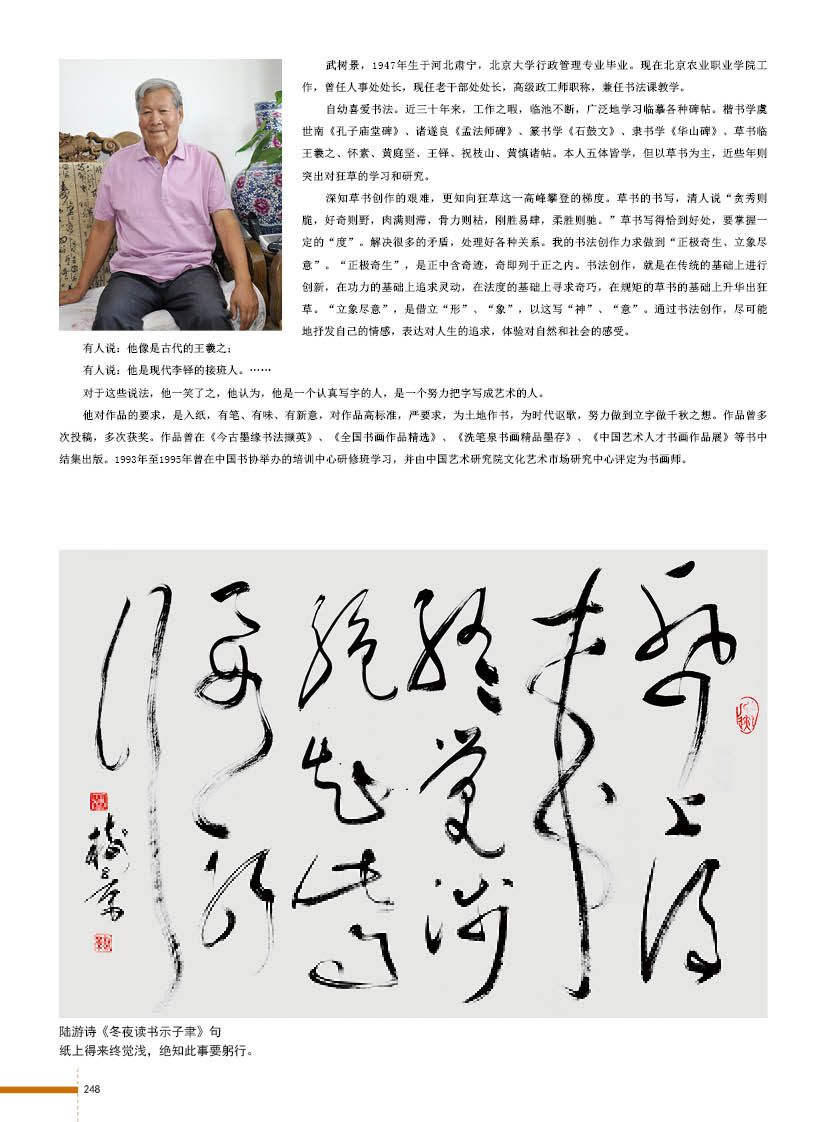 武树景，1947年生于河北肃宁，北京大学行政管理专业毕业。现在北京农业职业学院工
作，曾任人事处处长，现任老干部处处长，高级政工师职称，兼任书法课教学。
自幼喜爱书法。近三十年来，工作之暇，临池不断，广泛地学习临摹各种碑帖。楷书学虞
世南《孔子庙堂碑》、诸遂良《孟法师碑》、篆书学《石鼓文》、隶书学《华山碑》、草书临
王羲之、怀素、黄庭坚、王铎、祝枝山、黄慎诸帖。本人五体皆学，但以草书为主，近些年则
突出对狂草的学习和研究。
深知草书创作的艰难，更知向狂草这一高峰攀登的梯度。草书的书写，清人说“贪秀则
脆，好奇则野，肉满则滞，骨力则枯，刚胜易肆，柔胜则驰。”草书写得恰到好处，要掌握一
定的“度”。解决很多的矛盾，处理好各种关系。我的书法创作力求做到“正极奇生、立象尽
意”。“正极奇生”，是正中含奇迹，奇即列于正之内。书法创作，就是在传统的基础上进行
创新，在功力的基础上追求灵动，在法度的基础上寻求奇巧，在规矩的草书的基础上升华出狂
草。“立象尽意”，是借立“形”、“象”，以这写“神”、“意”。通过书法创作，尽可能
地抒发自己的情感，表达对人生的追求，体验对自然和社会的感受。
有人说：他像是古代的王羲之；
有人说：他是现代李铎的接班人。……
对于这些说法，他一笑了之，他认为，他是一个认真写字的人，是一个努力把字写成艺术的人。
他对作品的要求，是入纸，有笔、有味、有新意，对作品高标准，严要求，为土地作书，为时代讴歌，努力做到立字做千秋之想。作品曾多
次投稿，多次获奖。作品曾在《今古墨缘书法撷英》、《全国书画作品精选》、《洗笔泉书画精品墨存》、《中国艺术人才书画作品展》等书中
结集出版。1993年至1995年曾在中国书协举办的培训中心研修班学习，并由中国艺术研究院文化艺术市场研究中心评定为书画师。
纸上得
来
终觉浅
绝知此事
要躬
行
树景
陆游诗《冬夜读书示子聿》句
纸上得来终觉浅，绝知此事要躬行。
248